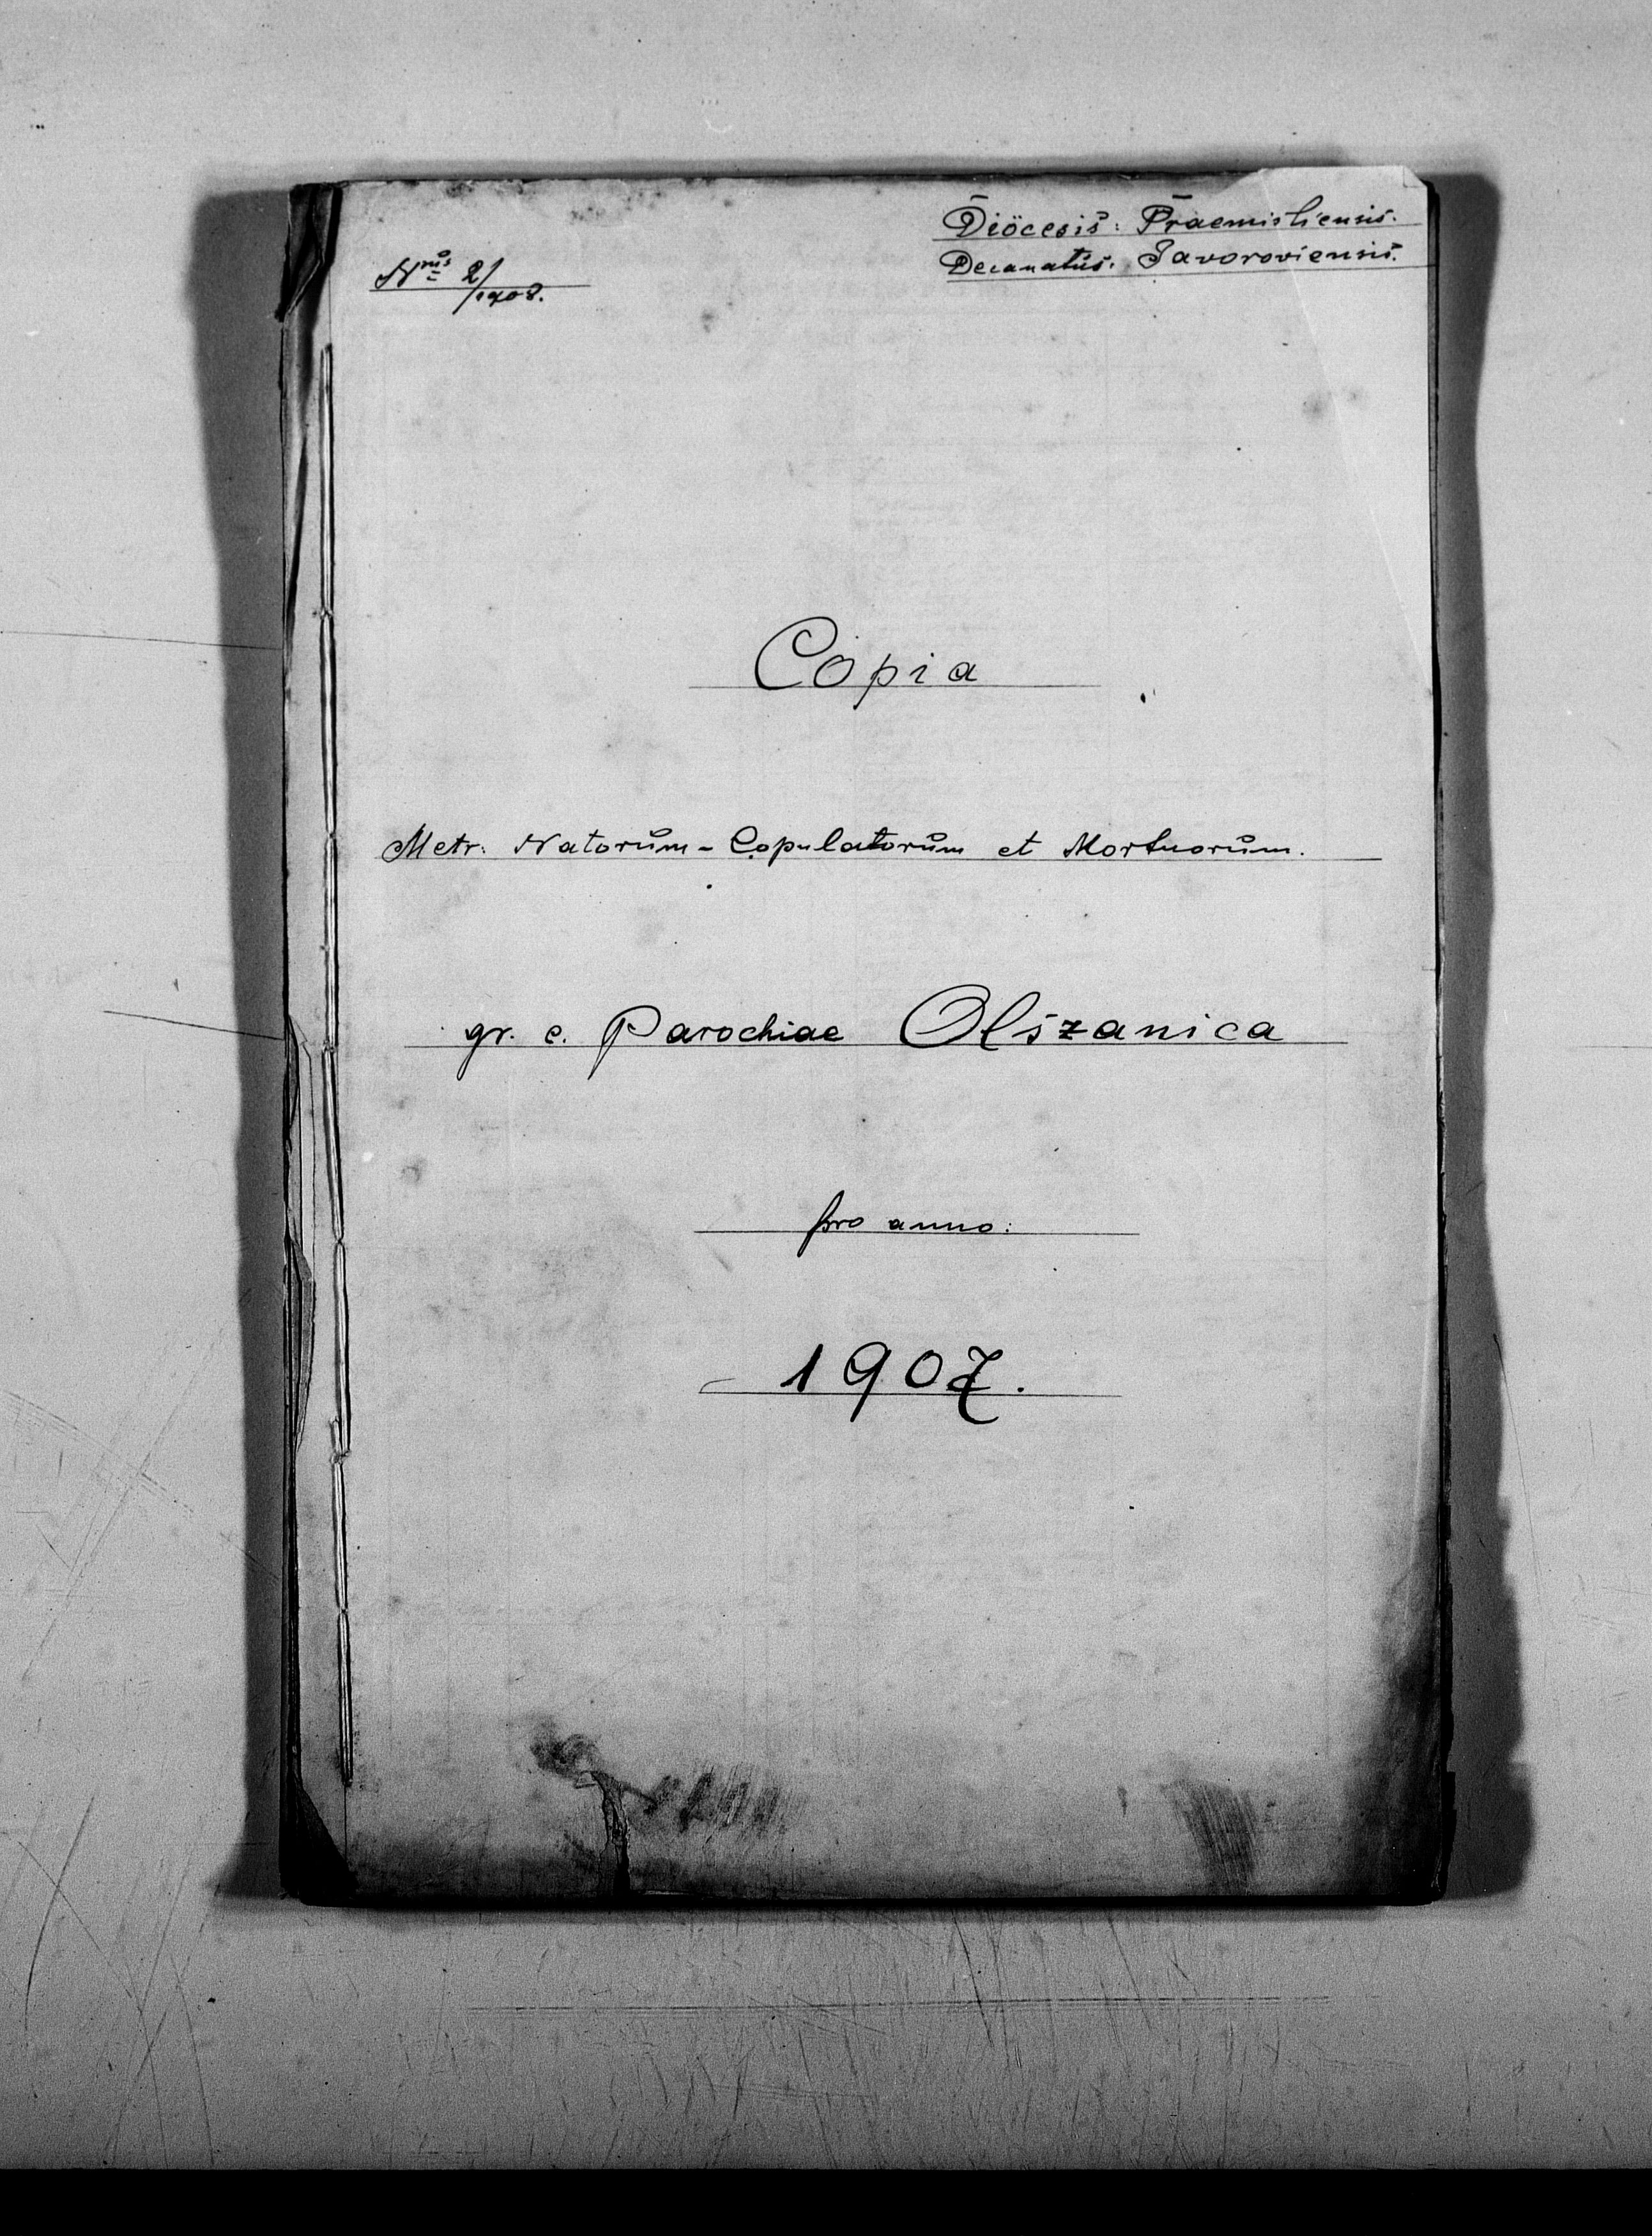 Nrus 2/1908.
Diöcesis: Praemisliensis.
Decanatus: Javoroviensis.
Copia
Metr. Natorum - Copulatorum et Mortuorum.
gr. c. Parochiae Olszanica
pro anno:
1907.